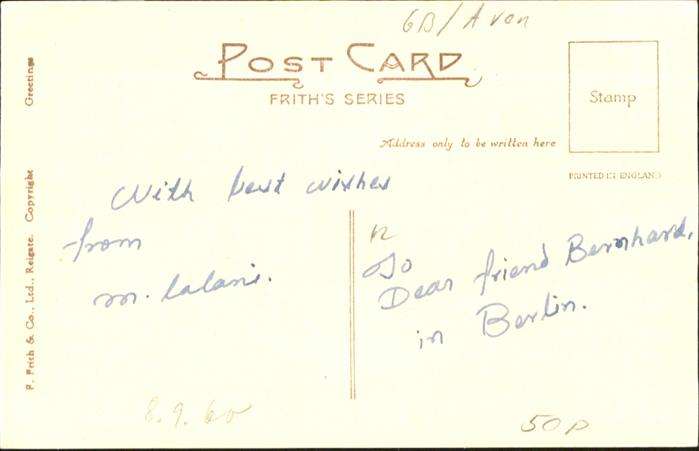 GB/Avon
POST CARD
FRITH'S SERIES
Stamp
Address only to be written here
PRINTED IN ENGLAND
F. Frith & Co., Ltd., Reigate. Copyright Greetings
With best wishes
from
m. lalani.
To
Dear friend Bernhard,
in Berlin.
8.9.60
50p